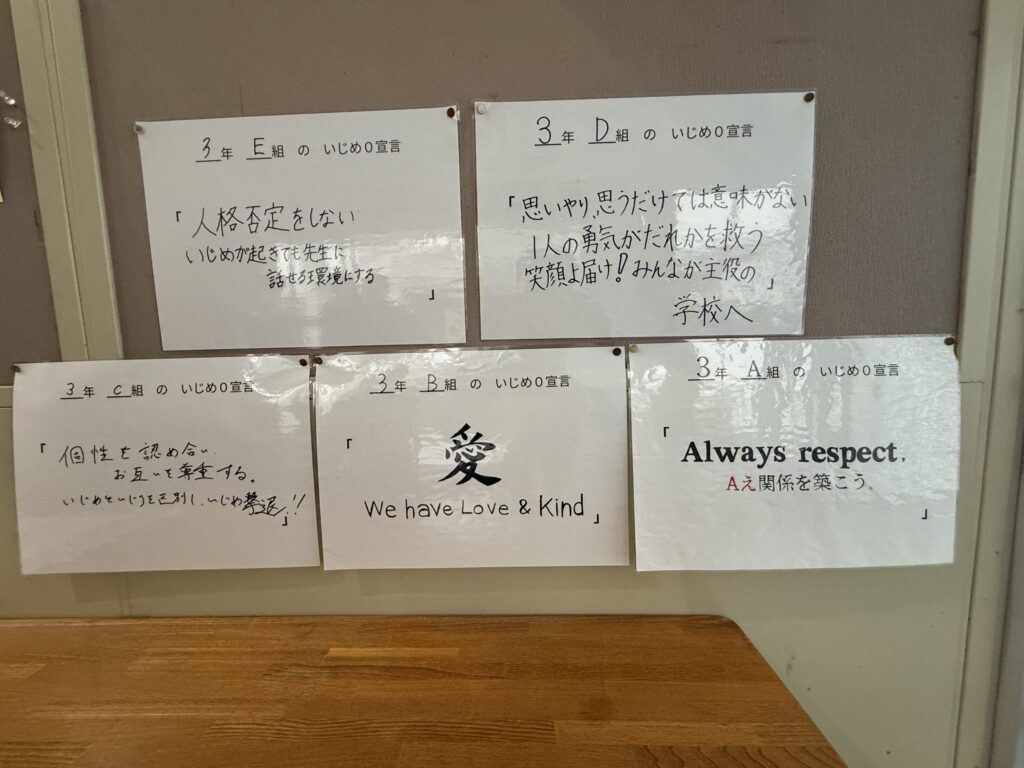 3年 E組 の いじめ0宣言
「人格否定をしない
いじめが起きても先生に
話せる環境にする
」
3年 D組 の いじめ0宣言
「思いやり、思うだけでは意味がない
1人の勇気がだれかを救う
笑顔よ届け!みんなが主役の」
学校へ
3年 C組 の いじめ0宣言
「個性を認め合い、
お互いを尊重する。
いじめといじりを区別し、いじめ撃退!!
」
3年 B組 の いじめ0宣言
「
愛
We have Love & Kind」
3年 A組 の いじめ0宣言
「
Always respect.
Aえ関係を築こう。
」